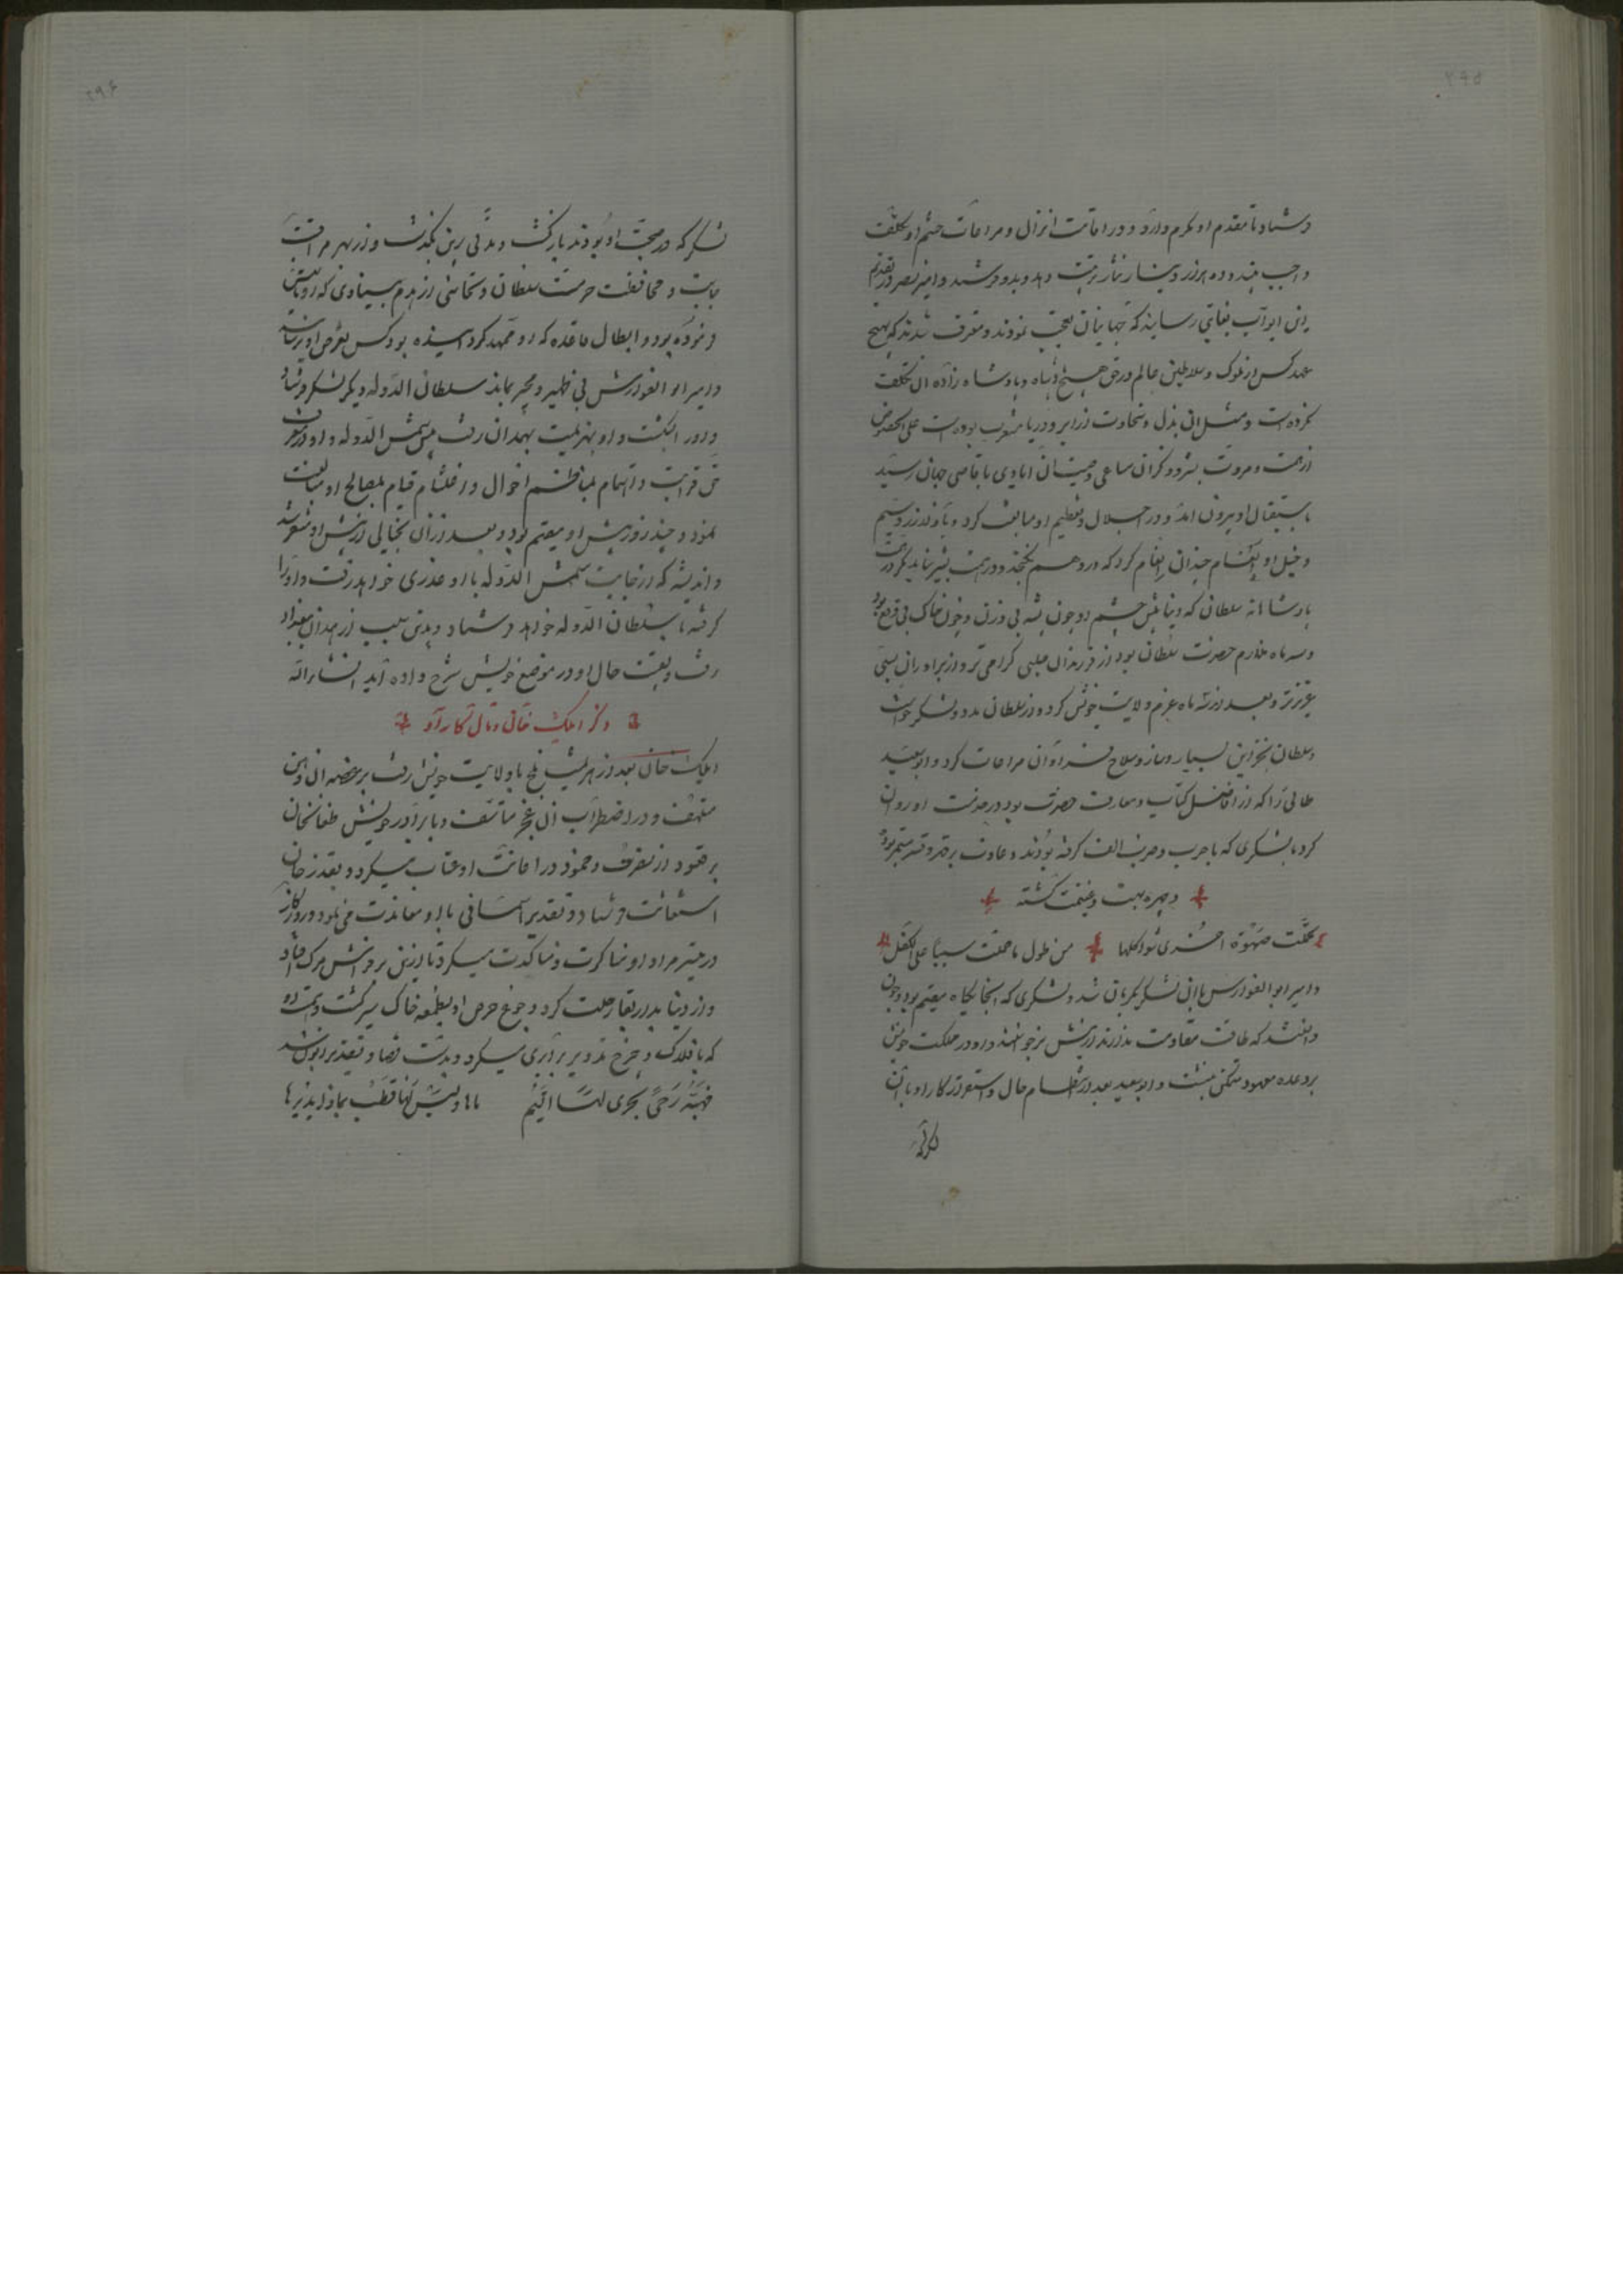 ۲۹۵
فرستاد تا مقدم او مکرم دارد و در اقامت انزال و مراعات حشم او تکلف
واجب بیند و ده هزار دینار نثار ترتیب دهد و بدو فرستد و امیر نصر در تقدیم
این ابواب بغایتی رسانید که جهانیان تعجب نمودند و معترف شدند که بهیچ
عهد کس از ملوک و سلاطین عالم در حق هیچ پناه و پادشاه زاده آن تکلف
نکرده است و مثل آن بذل و سخاوت از ابر و دریا مستغرب بوده است علی الخصوص
از همت و مروت بشر و ذکر آن مساعی و صیت آن ایادی باقاصی جهان رسید
باستقبال او بیرون آمد و در اجلال و تعظیم او مبالغت کرد و باو از زر و سیم
و خیل و انعام چندان انعام کرد که در وهم نگنجد و در همت بشر نیاید مگر در همت
پادشاهانه سلطان که دنیا پیش چشم او چون پشه بی وزن و چون خاک بی وقع بود
و سه ماه ملازم حضرت سلطان بود از فرزندان صلبی گرامی تر و از برادران نسبی
عزیزتر و بعد از سه ماه عزم ولایت خویش کرد و از سلطان مدد و لشکر خواست
سلطان بخزاین بسیار و ساز و سلاح فراوان مراعات کرد و ابوسعید
طائی را که از افاضل کتاب و معارف حضرت بود در خدمت او روان
کرد با لشکری که با حرب و ضرب الف گرفته بودند و عادت بر قهر و قسر مستمر بود
و بهره بهت و غنیمت گشته
تکلفت صهوة اخری شواکلها من طول ما حملت سبیا علی الکفل
و امیر ابوالفوارس با آن لشکر بکرمان شد و لشکری که آنجایگاه مقیم بود چون
دانستند که طاقت مقاومت ندارند از پیش برخواستند و او در مملکت خویش
بر وعده معهود متمکن بنشست و ابوسعید بعد از انتظام حال و استقرار کار او با آن
لشکر که
۲۹۶
لشکر که در صحبت او بودند بازگشت و مدتی برین بگذشت و از بهر مراقبت
جانب و محافظت حرمت سلطان و تحاشی از هدم بنیادی که او تأسیس
فرموده بود و ابطال قاعده که او ممهد گردانیده بود کس تعرض او نرسانید
و امیر ابوالفوارس بی ظهیر و مجیر بماند سلطان الدوله دیگر لشکر فرستاد
و او را بکشت و او بهزیمت بهمدان رفت پیش شمس الدوله و او در تعرف
حق قرابت و اهتمام بمناظم احوال و اغتنام قیام بمصالح او مبالغت
نمود و چند روز پیش او مقیم بود و بعد از آن بخیالی از پیش او متشعر شد
و اندیشه که از جانب شمس الدوله با او عذری خواهد رفت و او را
گرفته با سلطان الدوله خواهد فرستاد و بدین سبب از همدان ببغداد
رفت و بقیت حال او در موضع خویش شرح داده آید انشاءالله
ذکر ایلک خان و مآل کار او
ایلک خان بعد از هزیمت بلخ با ولایت خویش رفت بر غصه آن وهن
متلهف و در اضطراب آن عجز متأسف و با برادر خویش طغانخان
بر قعود از نصرت و جمود در اعانت او عتاب میکرد و بقدرخان
استغاثت فرستاد و تقدیر آسمانی با او معاندت می نمود و روزگار
در حیز مراد او مناکرت و مناکدت میکرد تا ازین بر فراش مرگ افتاد
و از دنیا بدار بقا رحلت کرد و جوع حرص او بطعمه خاک سیر گشت و همت او
که با فلاک و چرخ مدویر برابری میکرد و بدست قضا و تقدیر زبون شد
فهبه رحی یجری لها الیم ماءها و لیس لها قطب بماذا یدیرها